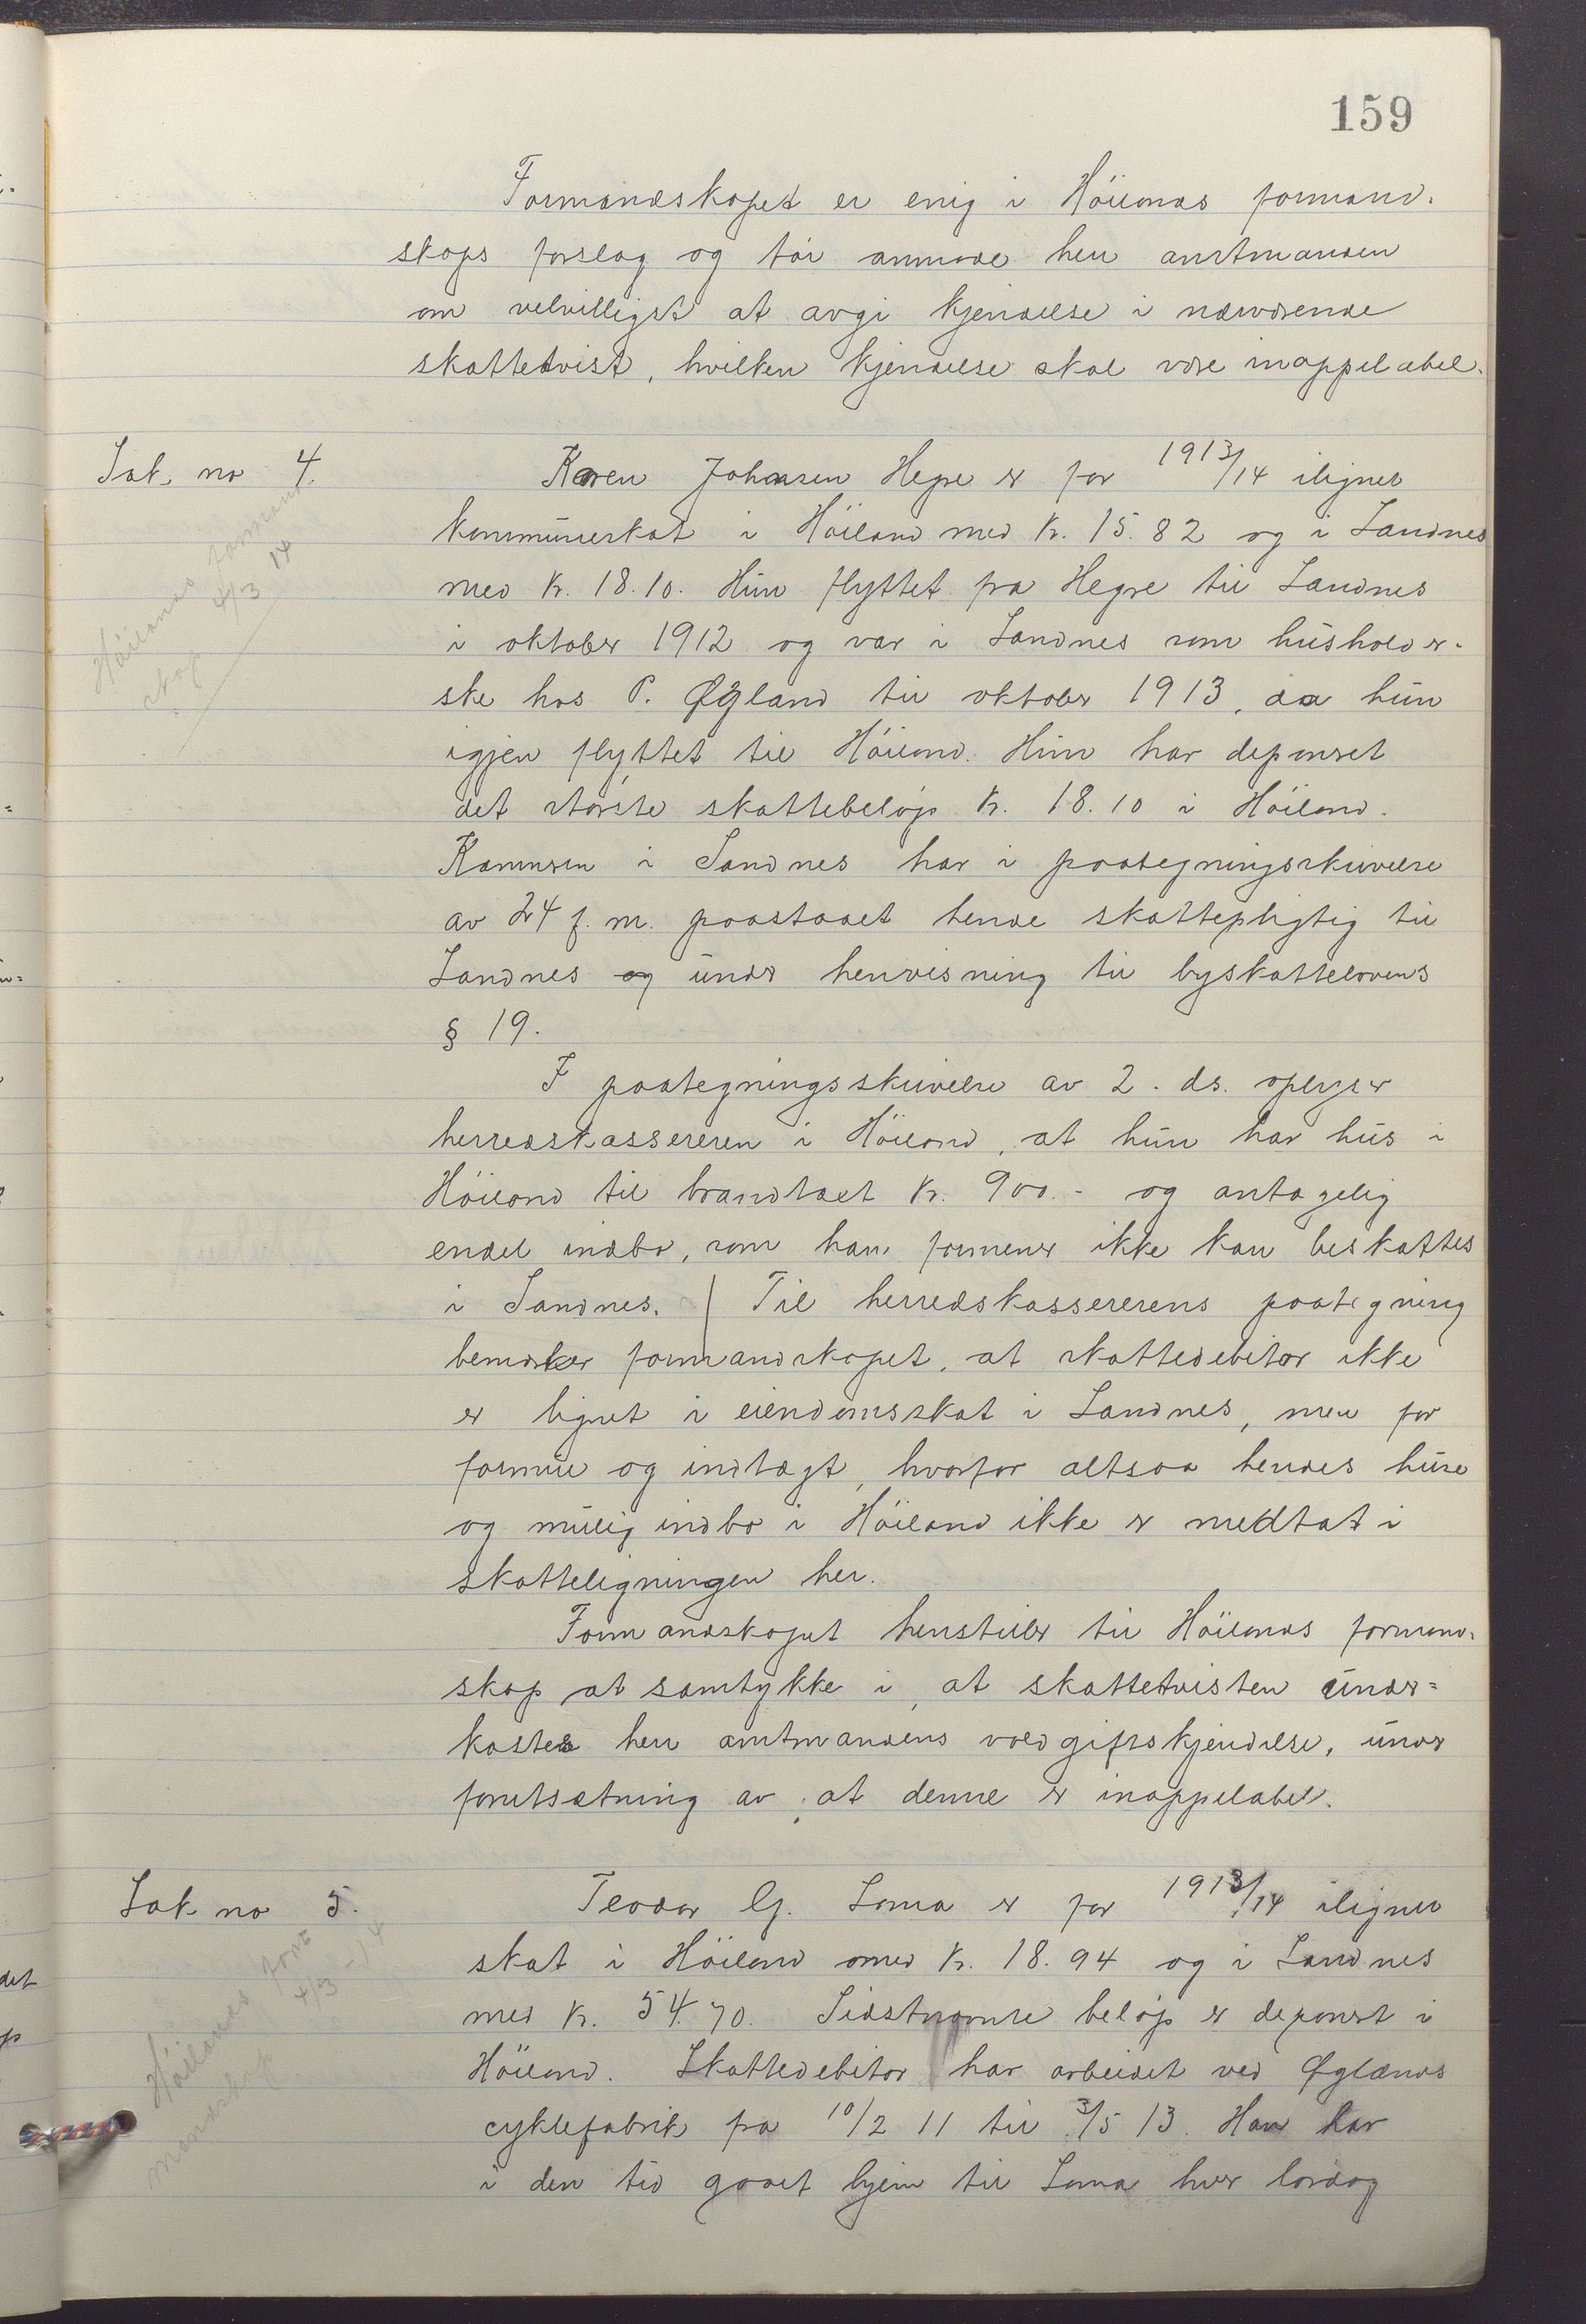 159
Formandskapet er enig i Höilands formand-
skaps forslag og tör anmode herr amtmanden
om velvilligst at avgi kjendelse i nærværende
skattetvist, hvilken kjendelse skal være inappelabel.
Sak no 4.
Höilands formand
skap 4/3 14
Karen Johansen Hegre er for 1913/14 ilignet
kommuneskat i Höiland med kr. 15.82 og i Sandnes
med kr. 18.10. Hun flyttet fra Hegre til Sandnes
i oktober 1912 og var i Sandnes som husholder-
ske hos P. Øgland til oktober 1913, da hun
igjen flyttet til Höiland. Hun har deponert
det störste skattebelöp kr. 18.10 i Höiland.
Kæmneren i Sandnes har i paategningsskrivelse
av 24 f. m. paastaaet hende skattepligtig til
Sandnes og under henvisning til byskattelovens
§ 19.
I paategningsskrivelse av 2. ds. oplyser
herredskassereren i Höiland, at hun har hus i
Höiland til brandtakst kr. 900.- og antagelig
endel indbo, som han formener ikke kan beskattes
i Sandnes. | Til herredskassererens paategning
bemerker formandskapet, at skattedebitor ikke
er lignet i eiendomsskat i Sandnes, men for
formue og indtægt, hvorfor altsaa hendes huse
og mulig indbo i Höiland ikke er medtat i
skatteligningen her.
Formandskapet henstiller til Höilands formand-
skap at samtykke i, at skattetvisten under=
kastes herr amtmandens voldgiftskjendelse, under
forutsætning av, at denne er inappelabel.
Sak no 5.
Höilands for=
mandskap 4/3 - 14
Teodor G. Soma er for 1913/14 ilignet
skat i Höiland med kr. 18.94 og i Sandnes
med kr. 54.70. Sidstnævnte belöp er deponert i
Höiland. Skattedebitor har arbeidet ved Øglænds
cyklefabrik fra 10/2 11 til 3/5 13. Han har
i den tid gaaet hjem til Soma hver lördag